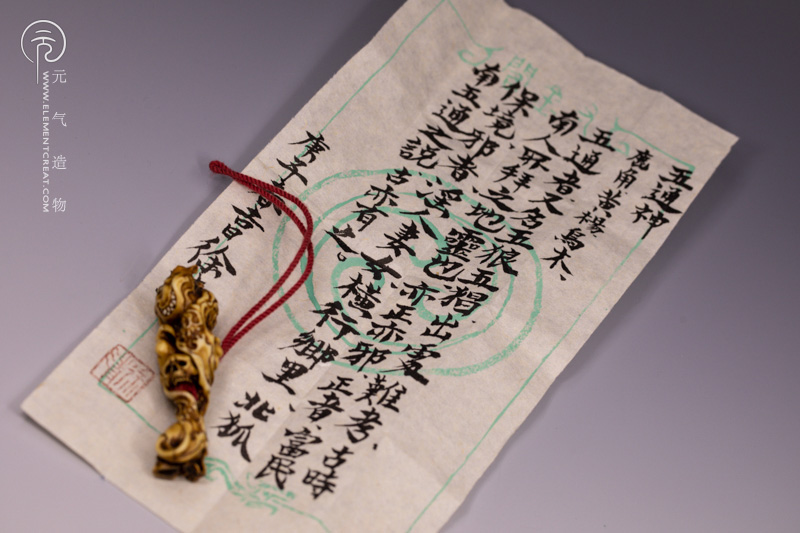 元气造物
WWW.ELEMENTCREAT.COM
五通神
鹿角黄楊烏木、
五通者又名五狼五猖出處難考、古時
南人拜之地靈也亦正亦邪、正者、富民
保境、邪者、淫人妻女橫行鄉里、北狐
南五通之説古亦有之。
庚子春吉日徐